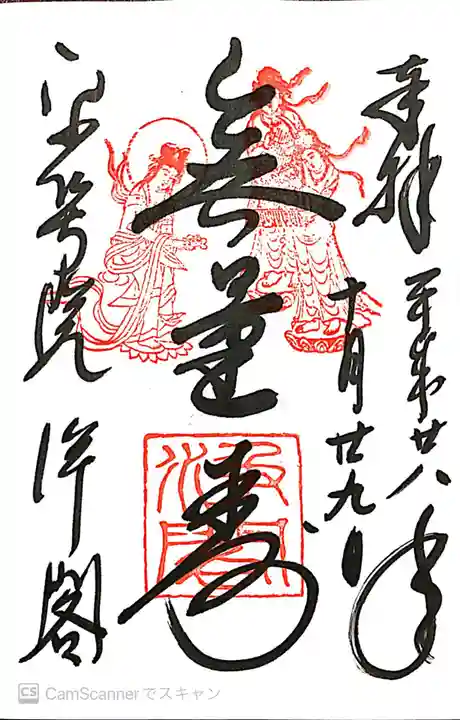 奉拝
平成廿八年
十月廿九日
無量寿
平等院
浄閣
CS CamScannerでスキャン